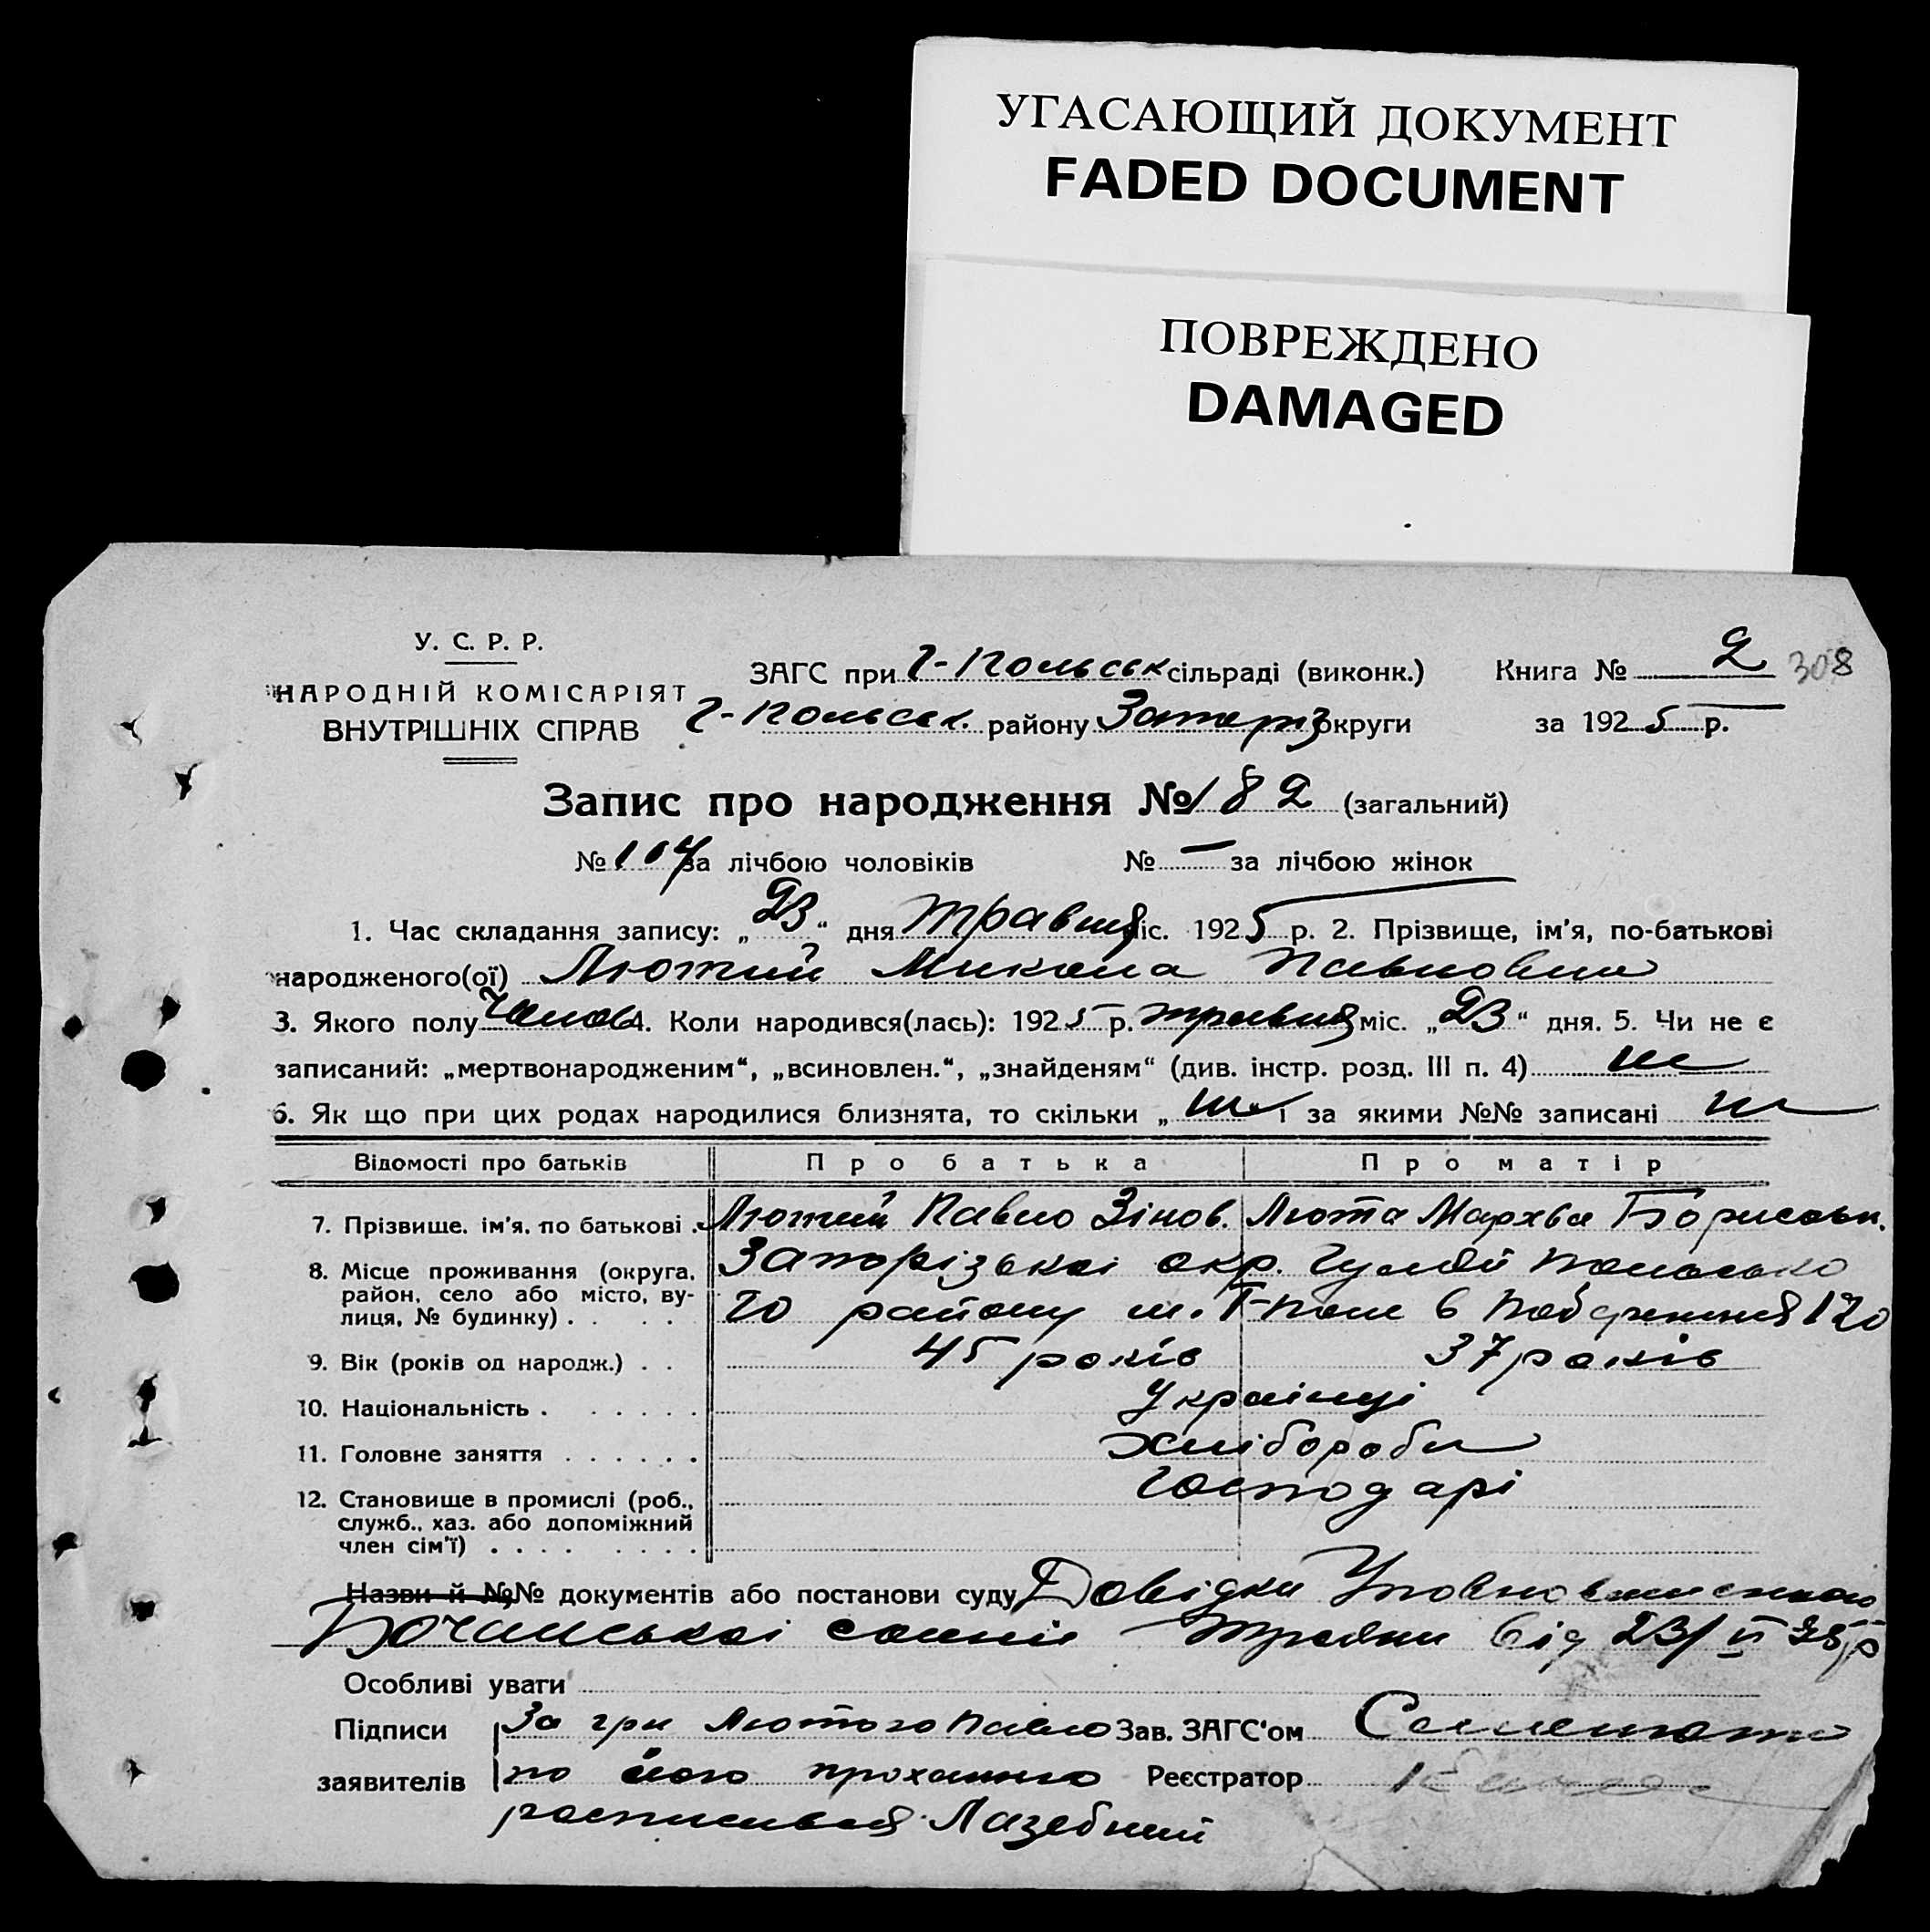 УГАСАЮЩИЙ ДОКУМЕНТ
FADED DOCUMENT
ПОВРЕЖДЕНО
DAMAGED
У. С. Р. Р.
НАРОДНІЙ КОМІСАРІЯТ
ВНУТРІШНІХ СПРАВ
ЗАГС при Г-Польськ сільраді (виконк.) Книга № 2 308
Г-Польськ. району Запоріз округи за 1925 р.
Запис про народження № 182 (загальний)
№ 104 за лічбою чоловіків № — за лічбою жінок
1. Час складання запису: „23“ дня травня міс. 1925 р. 2. Прізвище, ім'я, по-батькові
народженого(ої) Лютий Микола Павлович
3. Якого полу Чолов 4. Коли народився(лась): 1925 р. травня міс. „23“ дня. 5. Чи не є
записаний: „мертвонародженим“, „всиновлен.“, „знайденям“ (див. інстр. розд. III п. 4) ні
6. Як що при цих родах народилися близнята, то скільки „ ні і за якими №№ записані ні
Відомості про батьків Про батька Про матір
7. Прізвище. ім'я. по батькові . Лютий Павло Зінов. Люта Мархва Борисовн.
8. Місце проживання (округа, район, село або місто, вулиця, № будинку) . . . . Запорізькоі окр. Гуляй Польсько
го району м. Г-Поле 120
9. Вік (років од народж.) . . 45 років 37 років
10. Національність . . . . . . Украінці
11. Головне заняття . . . . . . хлібороби
12. Становище в промислі (роб., служб., хаз. або допоміжний член сім'ї) . . . . . . . . господарі
Назви й №№ документів або постанови суду Довідки Уповноваженого
сотні від 23/
Особливі уваги
Підписи За гр Лютого Павло Зав. ЗАГС'ом
заявителів по його проханню Реєстратор
росписався Лазебний